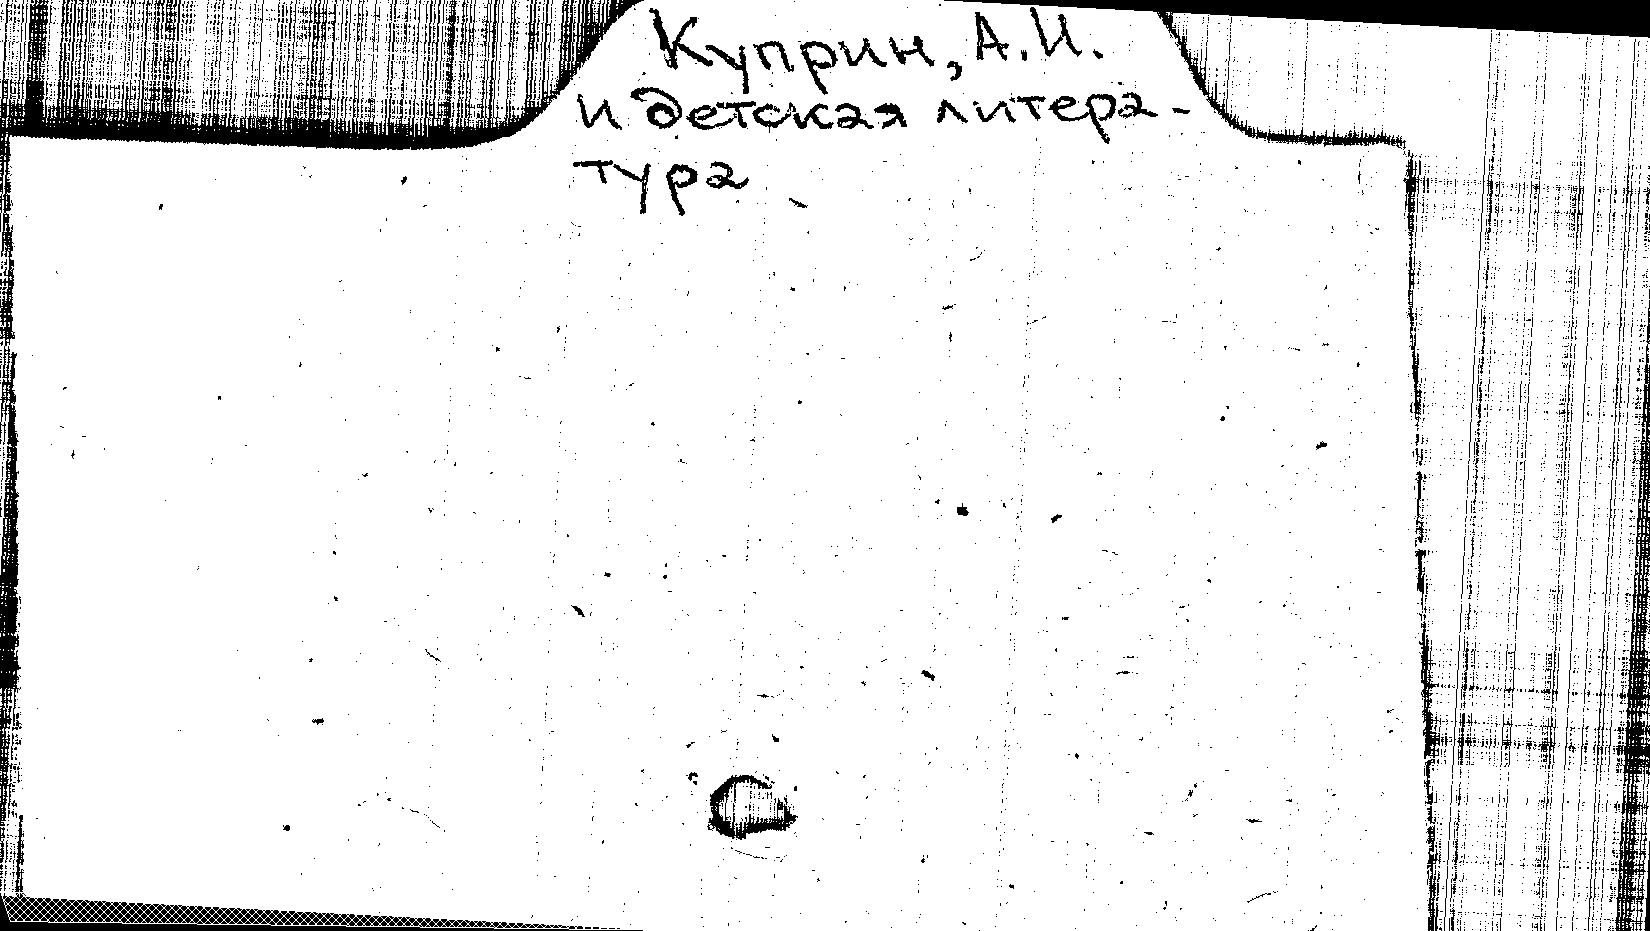 Куприн, А.И.
и детская литера-
тура